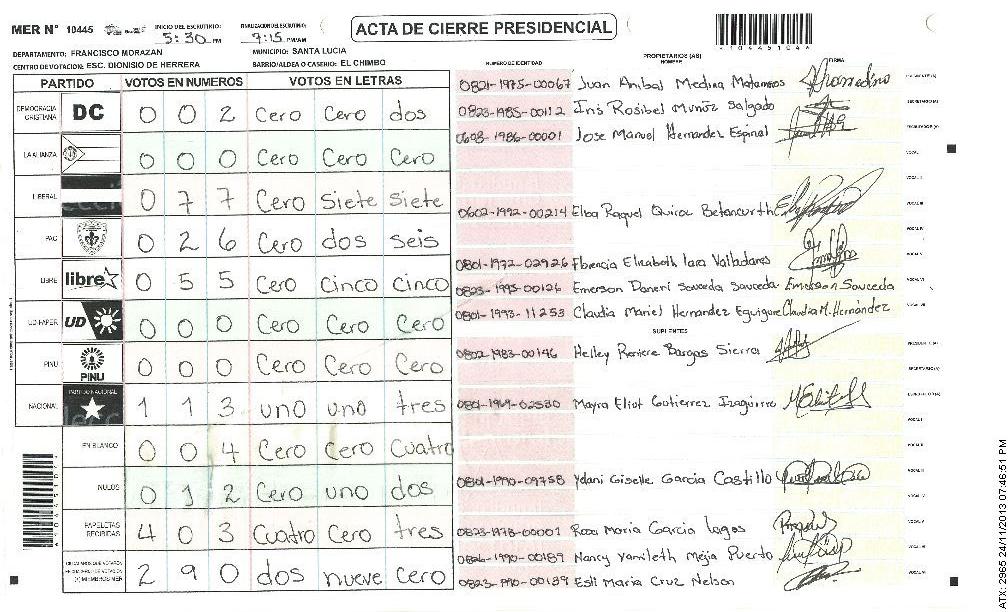 MER N° 10445
INICIO DEL ESCRUTINIO: 5:30 PM
FINALIZACION DEL ESCRUTINIO: 9:15 PM/AM
ACTA DE CIERRE PRESIDENCIAL
DEPARTAMENTO: FRANCISCO MORAZAN
MUNICIPIO: SANTA LUCIA
CENTRO DE VOTACION: ESC. DIONISIO DE HERRERA
BARRIO/ALDEA O CASERIO: EL CHIMBO
PARTIDO VOTOS EN NUMEROS VOTOS EN LETRAS
DEMOCRACIA CRISTIANA DC 0 0 2 Cero Cero dos
LA ALIANZA 0 0 0 Cero Cero Cero
LIBERAL 0 7 7 Cero Siete Siete
PAC 0 2 6 Cero dos seis
LIBRE libre 0 5 5 Cero Cinco Cinco
UD-FAPER UD 0 0 0 Cero Cero Cero
PINU PINU 0 0 0 Cero Cero Cero
NACIONAL PARTIDO NACIONAL 1 1 3 uno uno tres
EN BLANCO 0 0 4 Cero Cero Cuatro
NULOS 0 1 2 Cero uno dos
PAPELETAS RECIBIDAS 4 0 3 Cuatro Cero tres
(+) MIEMBROS MER 2 9 0 dos nueve Cero
NUMERO DE IDENTIDAD PROPIETARIOS (AS) NOMBRE FIRMA
0821-1975-00067 Juan Anibal Medina Matamoros
0823-1985-00112 Iris Rosibel Muñoz Salgado
0608-1986-00001 Jose Manuel Hernandez Espinal
0602-1992-00214 Elba Raquel Quiroz Betancurth
0801-1972-02926 Florencia Elizabeth Lara Valladares
0823-1995-00126 Emerson Daneri Sauceda Sauceda Emerson Sauceda
0801-1993-11253 Claudia Mariel Hernandez Eguigure Claudia M. Hernández
SUPLENTES
0802-1983-00146 Helley Reniere Bargas Sierra
0801-1969-02530 Mayra Eliot Gutierrez Izaguirre
0801-1990-09758 Ydani Giselle Garcia Castillo
0823-1978-00001 Rosa Maria Garcia Lagos
0826-1990-00189 Nancy Yamileth Mejia Puerto
0823-1990-00139 Esli Maria Cruz Nelson
ATX: 2965 24/11/2013 07:46:51 PM